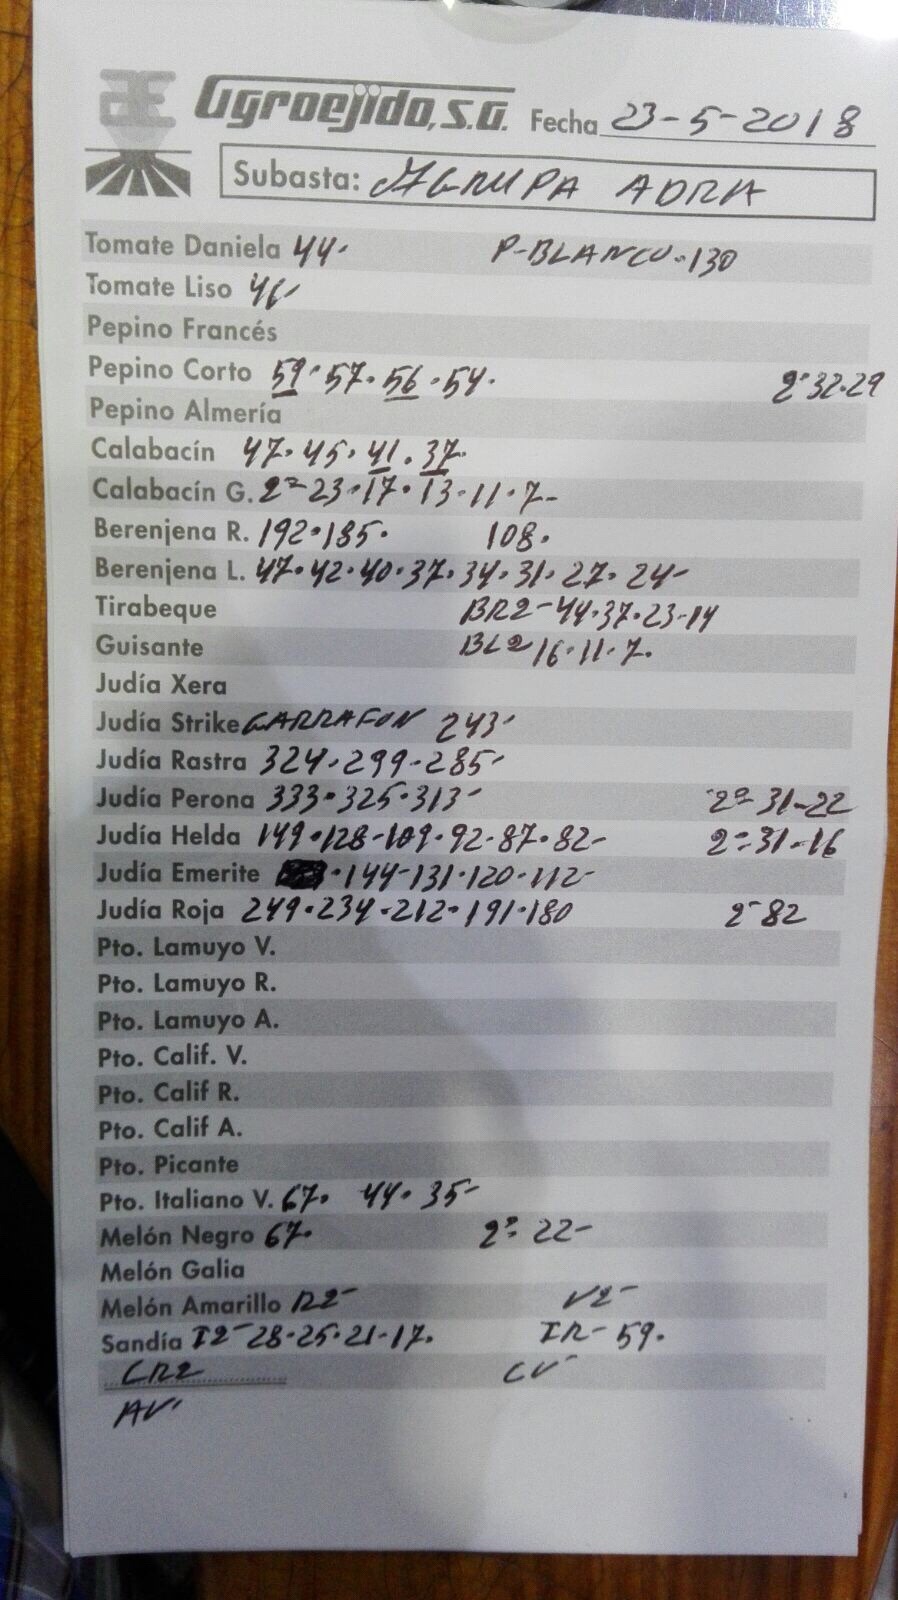 Agroejido, S.A. Fecha 23-5-2018
Subasta: AGRUPA ADRA
Tomate Daniela 44- P-BLANCO-130
Tomate Liso 46-
Pepino Francés
Pepino Corto 59-57-56-54- 2ª 32-29
Pepino Almería
Calabacín 47-45-41-37-
Calabacín G. 2ª-23-17-13-11-7-
Berenjena R. 192-185- 108-
Berenjena L. 47-42-40-37-34-31-27-24-
Tirabeque BR2-44-37-23-14
Guisante BL2 16-11-7-
Judía Xera
Judía Strike GARRAFON 243-
Judía Rastra 324-299-285-
Judía Perona 333-325-313- 2ª 31-22
Judía Helda 149-128-109-92-87-82- 2ª 31-16
Judía Emerite -144-131-120-112-
Judía Roja 249-234-212-191-180 2ª 82
Pto. Lamuyo V.
Pto. Lamuyo R.
Pto. Lamuyo A.
Pto. Calif. V.
Pto. Calif R.
Pto. Calif A.
Pto. Picante
Pto. Italiano V. 67- 44-35-
Melón Negro 67- 2ª 22-
Melón Galia
Melón Amarillo R2- V2-
Sandía I2-28-25-21-17- IR-59-
CR2 CV-
AV-